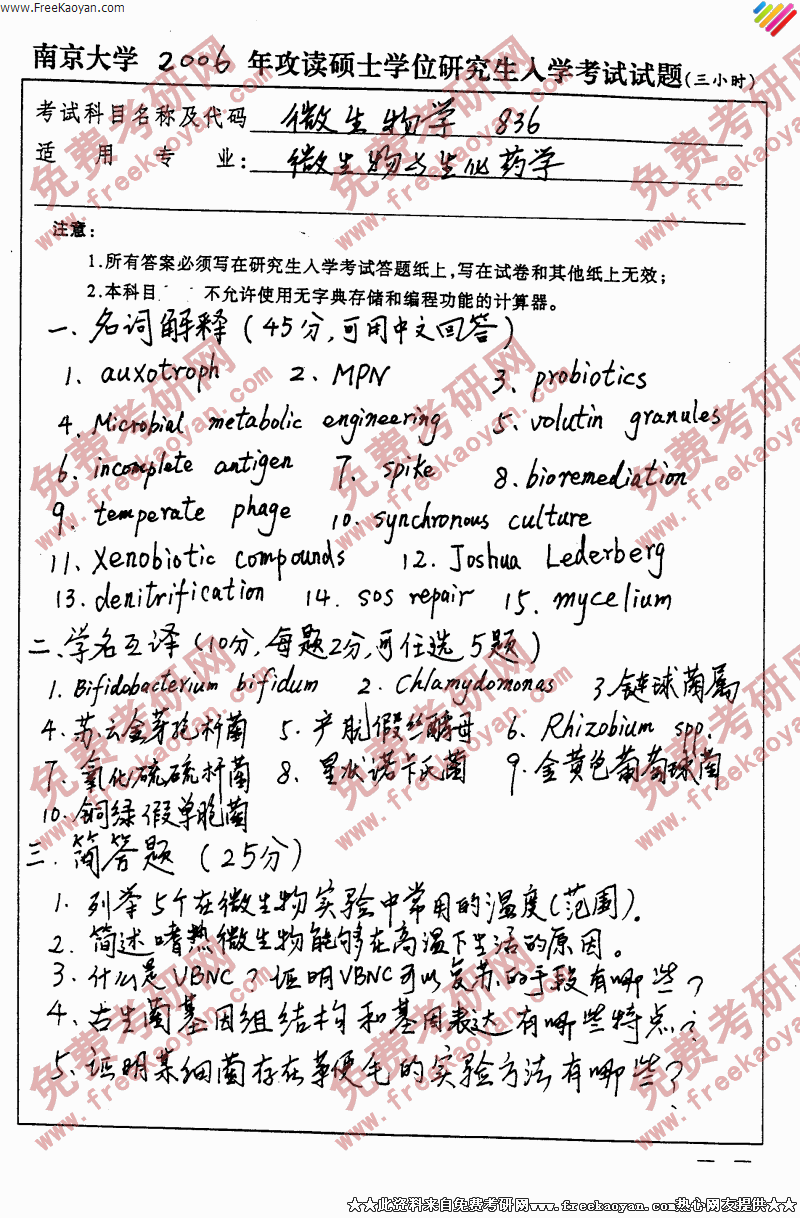 www.FreeKaoyan.com
南京大学 2006 年攻读硕士学位研究生入学考试试题(三小时)
考试科目名称及代码 微生物学 836
适用专业: 微生物与生化药学
注意:
1.所有答案必须写在研究生入学考试答题纸上,写在试卷和其他纸上无效;
2.本科目 不允许使用无字典存储和编程功能的计算器。
一、名词解释(45分,可用中文回答)
1. auxotroph 2. MPN 3. probiotics
4. Microbial metabolic engineering 5. volutin granules
6. incomplete antigen 7. spike 8. bioremediation
9. temperate phage 10. synchronous culture
11. Xenobiotic compounds 12. Joshua Lederberg
13. denitrification 14. sos repair 15. mycelium
二、学名互译(10分,每题2分,可任选5题)
1. Bifidobacterium bifidum 2. Chlamydomonas 3.链球菌属
4. 苏云金芽孢杆菌 5. 产朊假丝酵母 6. Rhizobium spp.
7. 氧化硫硫杆菌 8. 星状诺卡氏菌 9. 金黄色葡萄球菌
10. 铜绿假单胞菌
三. 简答题(25分)
1. 列举5个在微生物实验中常用的温度(范围).
2. 简述嗜热微生物能够在高温下生活的原因。
3. 什么是VBNC?证明VBNC可以复苏的手段有哪些?
4. 古生菌基因组结构和基因表达有哪些特点?
5. 证明某细菌存在革便毛的实验方法有哪些?
★★此资料来自免费考研网www.freekaoyan.com热心网友提供★★
免费考研网
www.freekaoyan.com